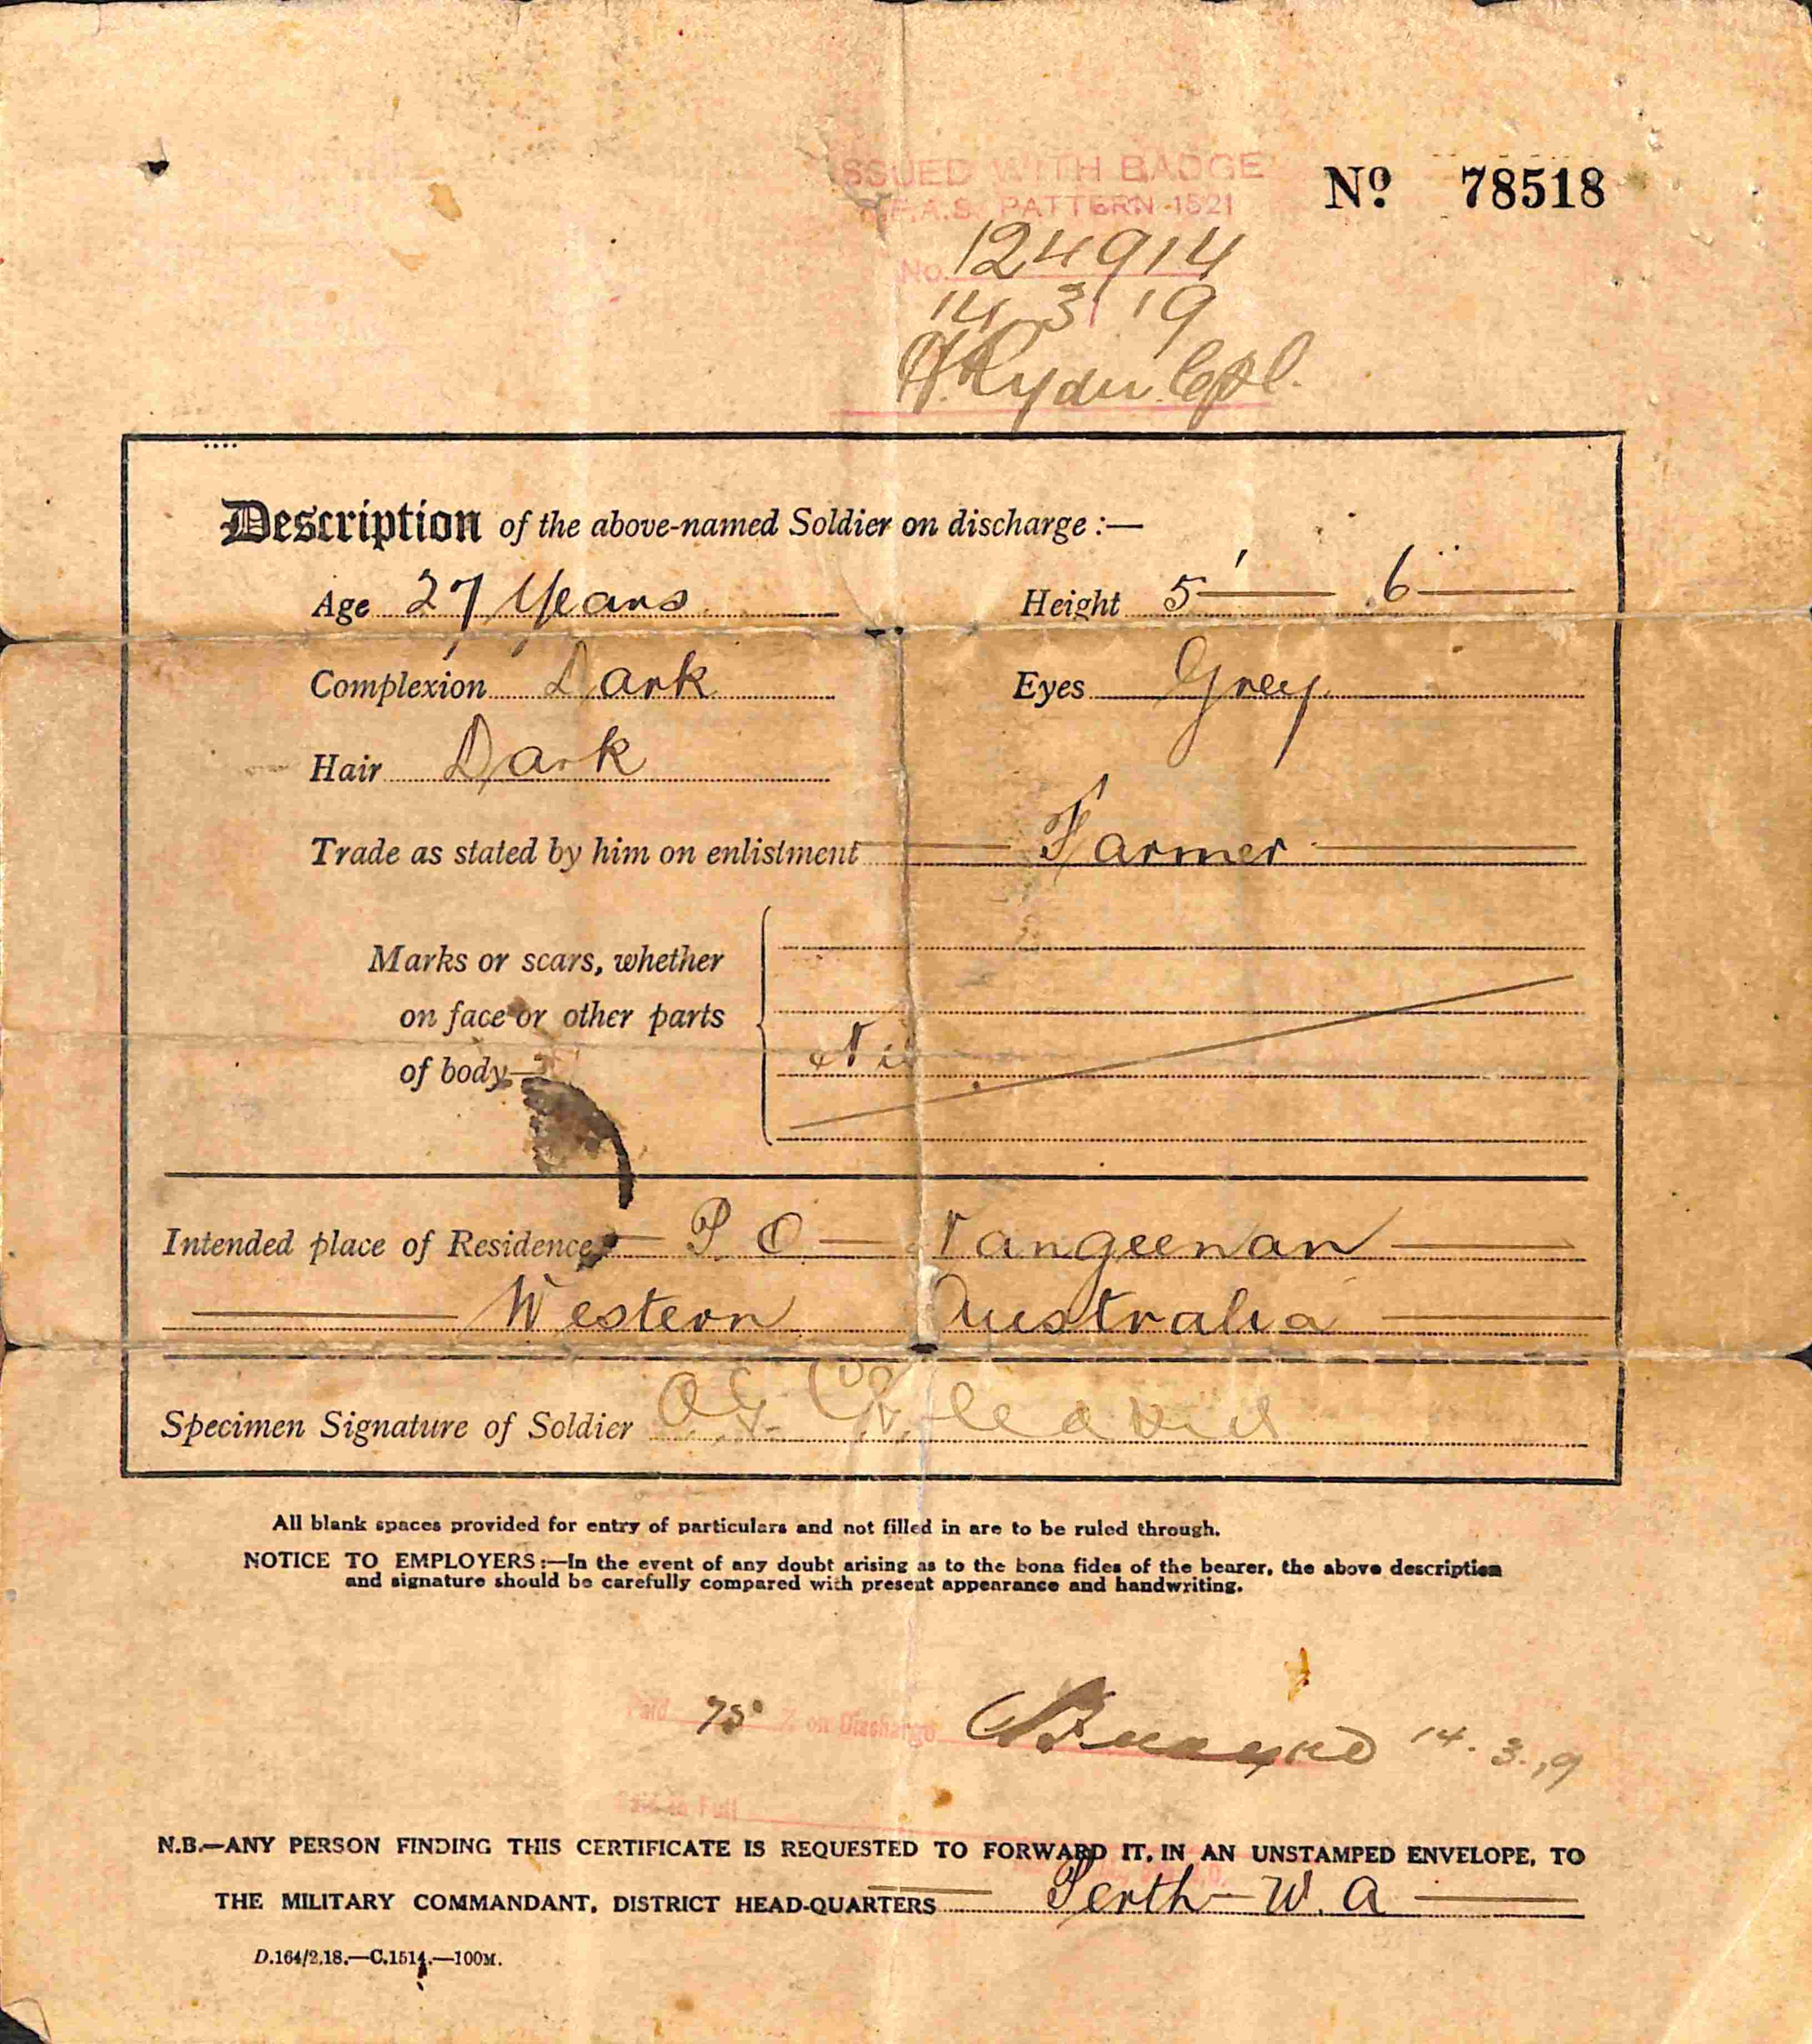 ISSUED WITH BADGE
R.F.A.S. PATTERN 1521
Nº 78518
No. 124914
14 3 19
H Ryder Cpl.
Description of the above-named Soldier on discharge :—
Age 27 Years Height 5' 6"
Complexion Dark Eyes Grey
Hair Dark
Trade as stated by him on enlistment Farmer
Marks or scars, whether
on face or other parts
of body—
Nil
Intended place of Residence P O Nangeenan
Western Australia
Specimen Signature of Soldier
All blank spaces provided for entry of particulars and not filled in are to be ruled through.
NOTICE TO EMPLOYERS :—In the event of any doubt arising as to the bona fides of the bearer, the above description
and signature should be carefully compared with present appearance and handwriting.
Paid 75 % on Discharge 14.3.19
Paid in Full
N.B.—ANY PERSON FINDING THIS CERTIFICATE IS REQUESTED TO FORWARD IT, IN AN UNSTAMPED ENVELOPE, TO
THE MILITARY COMMANDANT, DISTRICT HEAD-QUARTERS Perth W. A
D.164/2.18.—C.1514.—100M.